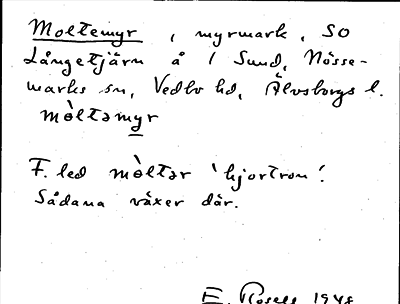 Moltemyr, myrmark, SO
Långetjärn å 1 Sund, Nösse-
marks sn, Vedbo hd, Älvsborgs l.
mòltəmyr
F. led mòltər 'hjortron'.
Sådana växer där.
E. Rosell 1948